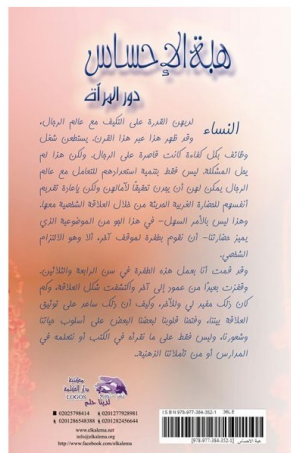 هبة الإحساس
دور المرأة
النساء لديهن القدرة على التكيف مع عالم الرجال،
وقد ظهر هذا عبر هذا القرن. يستطعن شغل
وظائف بكل كفاءة كانت قاصرة على الرجال. ولكن هذا لم
يحل المشكلة. ليس فقط بتنمية استعدادهم للتعامل مع عالم
الرجال يمكن لهن أن يجدن تحقيقًا لآمالهن ولكن بإعادة تقديم
أنفسهم للحضارة الغربية الحديثة من خلال العلاقة الشخصية معها.
وهذا ليس بالأمر السهل- في هذا الجو من الموضوعية الذي
يميز حضارتنا- أن نقوم بطفرة لموقف آخر، ألا وهو الالتزام
الشخصي.
وقد قمت أنا بعمل هذه الطفرة في سن الرابعة والثلاثين.
وقفزت بعيدًا من عمود إلى آخر واكتشفت شكل العلاقة، وكم
كان ذلك مفيد لي وللآخر. وكيف أن ذلك ساعد على توثيق
العلاقة بيننا، وفتحنا قلوبنا لبعضنا البعض على أسلوب حياتنا
وشعورنا، وليس فقط على ما نقرأه في الكتب أو نتعلمه في
المدارس أو من تأملاتنا الذهنية..
مكتبة
دار الكلمة
LOGOS
لدينا حلم
02025798414 01277928981
01286548388 01282456644
www.elkalema.net
info@elkalema.org
http://www.facebook.com/elkalema
ISBN 978-977-384-352-1
هبة الإحساس